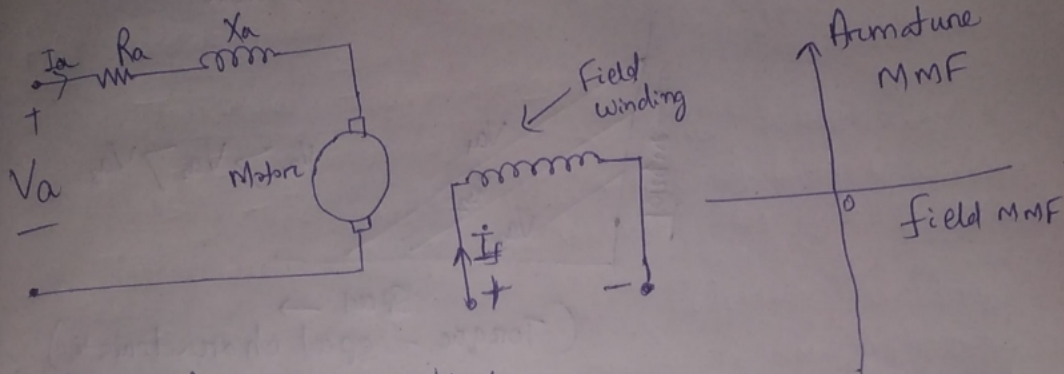 Ia
Ra
Xa
+
Va
−
Motor
Field
winding
If
+
−
Armature
MMF
0
field MMF